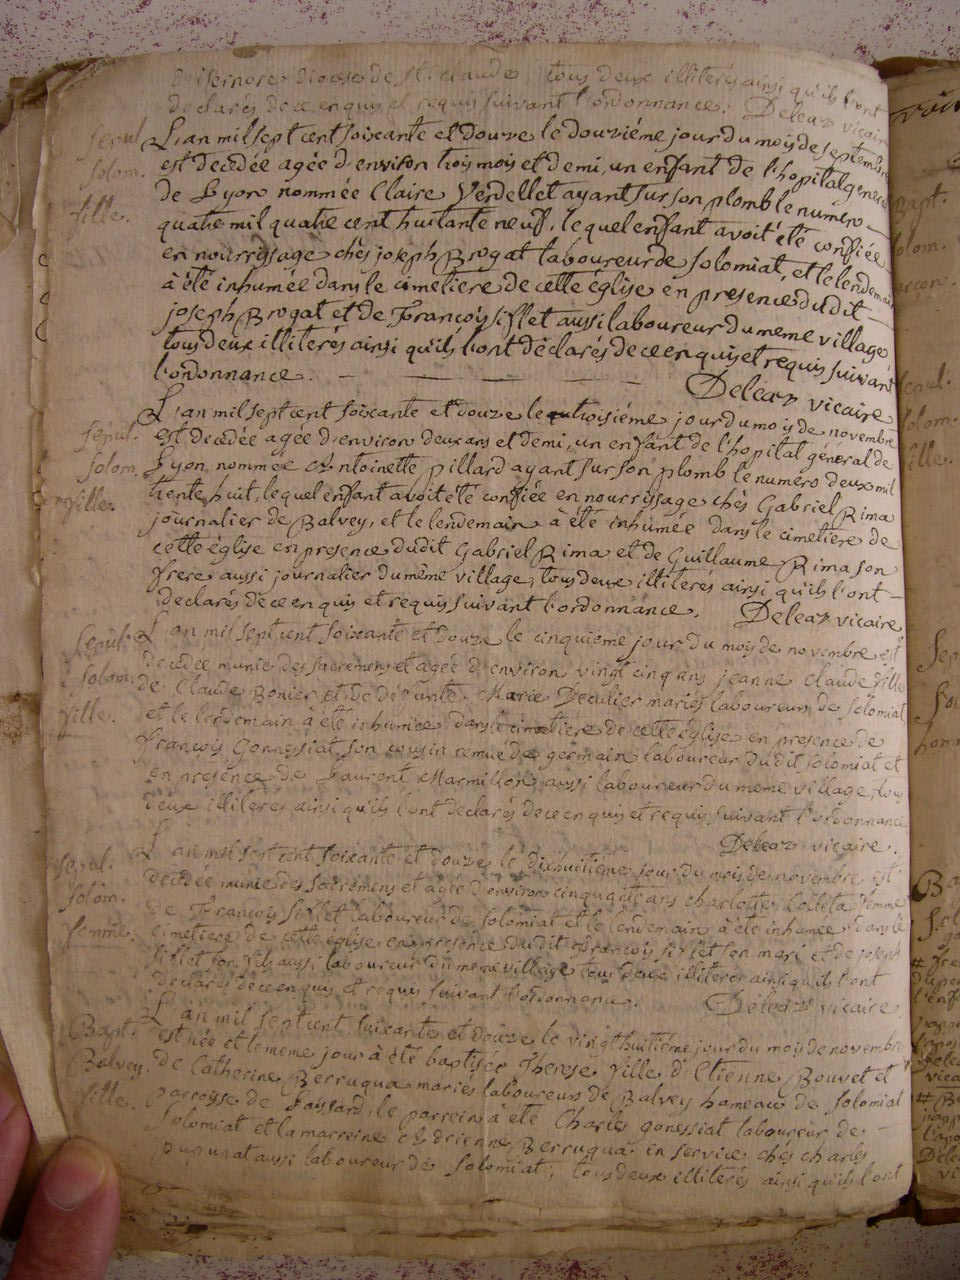 d'isernore diocese de st. claude, tous deux illiterés ainsi qu'ils l'ont
declarés de ce enquis et requis suivant l'ordonnance. Deleaz vicaire
sepul.
solom.
fille.
L'an mil sept cent soixante et douze le douziéme jour du mois de septembre
est decedée agée d'environ trois mois et demi, un enfant de l'hopital general
de Lyon nommée Claire Verdellet ayant sur son plomb le numero
quatre mil quatre cent huitante neuf, lequel enfant avoit été confiée
en nourrissage chés joseph Brogat laboureur de solomiat, et le lendemain
à été inhumée dans le cimetiere de cette église en presence dudit
joseph Brogat et de François siflet aussi laboureur du meme village
tous deux illiterés ainsi qu'ils l'ont déclarés de ce enquis et requis suivant
l'ordonnance. Deleaz vicaire
sepul.
solom.
fille.
L'an mil sept cent soixante et douze le troisiéme jour du mois de novembre
est decedée agée d'environ deux ans et demi, un enfant de l'hopital général de
Lyon, nommée Antoinette pillard ayant sur son plomb le numero deux mil
trente huit, lequel enfant avoit été confiée en nourrissage chés Gabriel Rima
journalier de Balvey, et le lendemain à été inhumée dans le cimetiere de
cette église en presence dudit Gabriel Rima et de Guillaume Rima son
frere aussi journalier du même village, tous deux illiterés ainsi qu'ils l'ont
declarés de ce enquis et requis suivant l'ordonnance. Deleaz vicaire
sepul.
solom.
fille.
L'an mil sept cent soixante et douze le cinquieme jour du mois de novembre est
decedée munie des sacremens et agée d'environ vingt cinq ans jeanne claude fille
de Claude Bonier et de défunte Marie Deculier mariés laboureurs de solomiat
et le lendemain à été inhumée dans le cimetiere de cette église en presence de
françois Gonnessiat son cousin remué de germain laboureur dudit solomiat et
en presence de Laurent Marmillon aussi laboureur du meme village, tous
deux illiterés ainsi qu'ils l'ont déclarés de ce enquis et requis suivant l'ordonnance
Deleaz vicaire.
sepul.
solom.
femme.
L'an mil sept cent soixante et douze le dixhuitiéme jour du mois de novembre est
decedée munie des sacremens et agée d'environ cinquante ans charlotte Colleta femme
de François siflet laboureur de solomiat et le lendemain à été inhumée dans le
cimetiere de cette église en presence dudit François siflet son mari et de joseph
siflet son fils aussi laboureur du meme village tous deux illiterés ainsi qu'ils l'ont
declarés de ce enquis et requis suivant l'ordonnance. Deleaz vicaire
Bapt.
Balvey.
fille.
L'an mil sept cent soixante et douze le vingthuitiéme jour du mois de novembre
est née et le meme jour à été baptisée Therese fille d'Etienne Bouvet et
de Catherine Berruqua mariés laboureurs de Balvey hameau de solomiat
parroisse de Laissard, le parrein à été Charles gonessiat laboureur de
solomiat et la marreine Adrienne Berruqua en service chés charles
pupunat aussi laboureur de solomiat; tous deux illiterés ainsi qu'ils l'ont